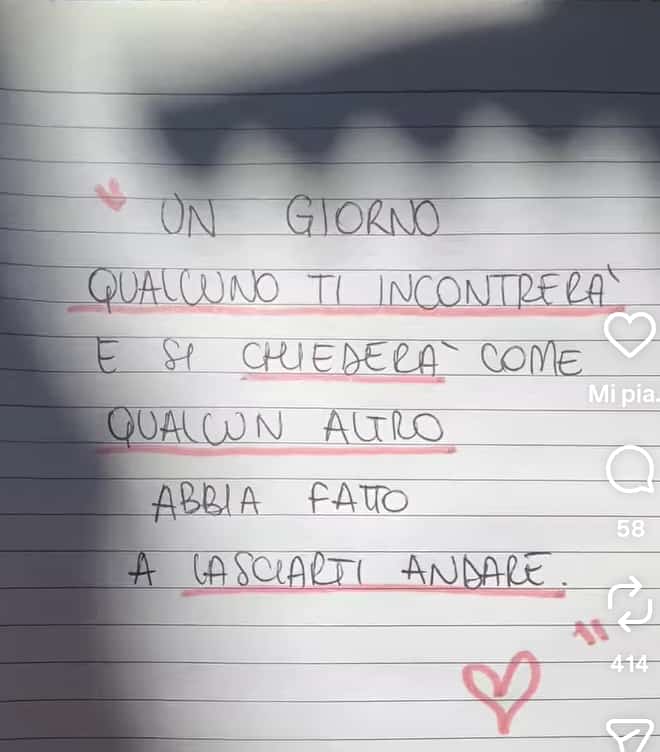 " UN GIORNO
QUALCUNO TI INCONTRERA'
E SI CHIEDERA' COME
QUALCUN ALTRO
ABBIA FATTO
A LASCIARTI ANDARE.
"
Mi pia.
58
414